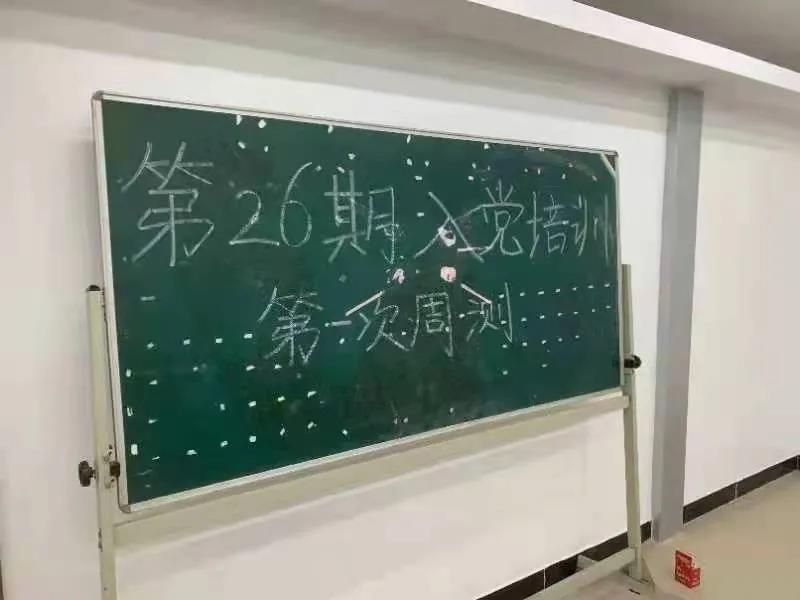 第26期入党培训
第一次周测